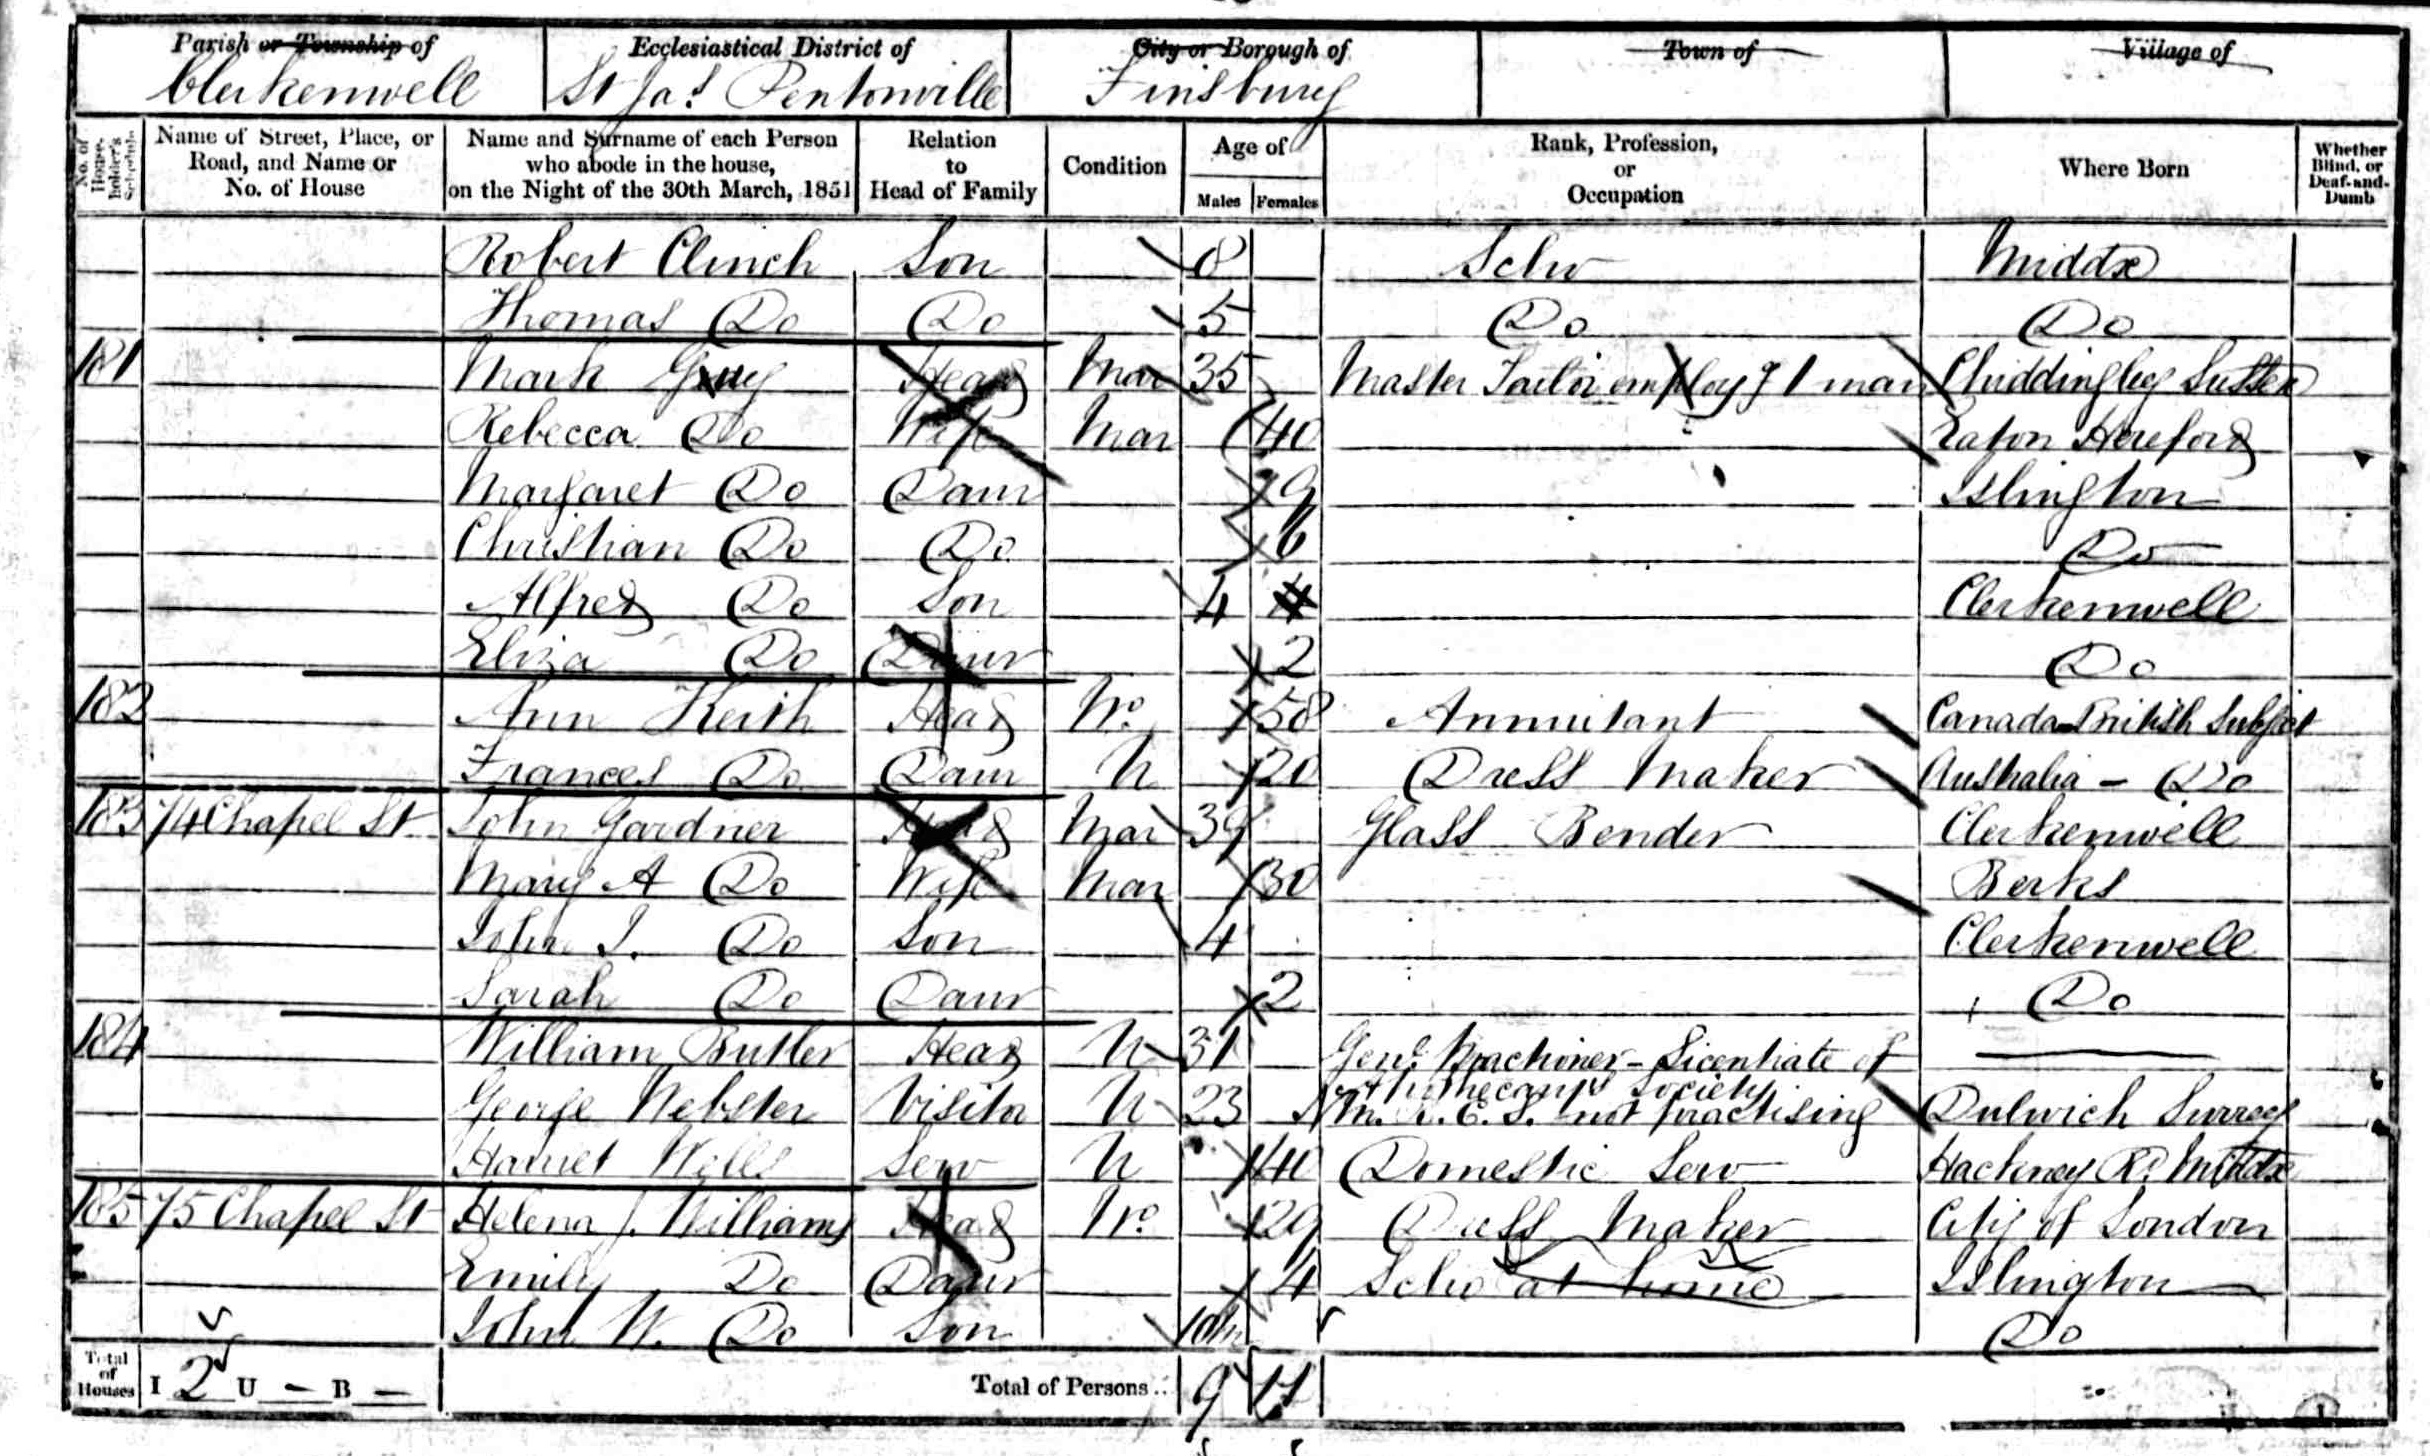 Parish or Township of Ecclesiastical District of City or Borough of Town of Village of
Clerkenwell St Jas Pentonville Finsbury
No. of House-holder's Schedule Name of Street, Place, or Road, and Name or No. of House Name and Surname of each Person who abode in the house, on the Night of the 30th March, 1851 Relation to Head of Family Condition Age of Males Females Rank, Profession, or Occupation Where Born Whether Blind, or Deaf-and-Dumb
Robert Clinch Son 8 Scho Middx
Thomas Do Do 5 Do Do
181 Mark Head Mar 35 Master Tailor employg 1 man Chiddingley Sussex
Rebecca Do Wife Mar 40 Eaton Hereford
Margaret Do Daur 9 Islington
Christian Do Do 6 Do
Alfred Do Son 4 Clerkenwell
Eliza Do Daur 2 Do
182 Ann Keith Head Wo 58 Annuitant Canada British Subject
Frances Do Daur U 20 Dress Maker Australia - Do
183 74 Chapel St John Gardner Head Mar 39 Glass Bender Clerkenwell
Mary A Do Wife Mar 30 Berks
John J. Do Son 4 Clerkenwell
Sarah Do Daur 2 Do
184 William Butler Head U 31 Genl Practioner - Licentiate of
Apothecarys Society
George Webster Visitor U 23 M.R.C.S. not practising Dulwich Surrey
Harriet Wells Serv U 40 Domestic Serv Hackney Rd Middx
185 75 Chapel St Helena J. Williams Head Wo 29 Dress Maker City of London
Emily Do Daur 4 Scho at home Islington
John W. Do Son 10m Do
Total of Houses I 2 U — B — Total of Persons.. 9 11